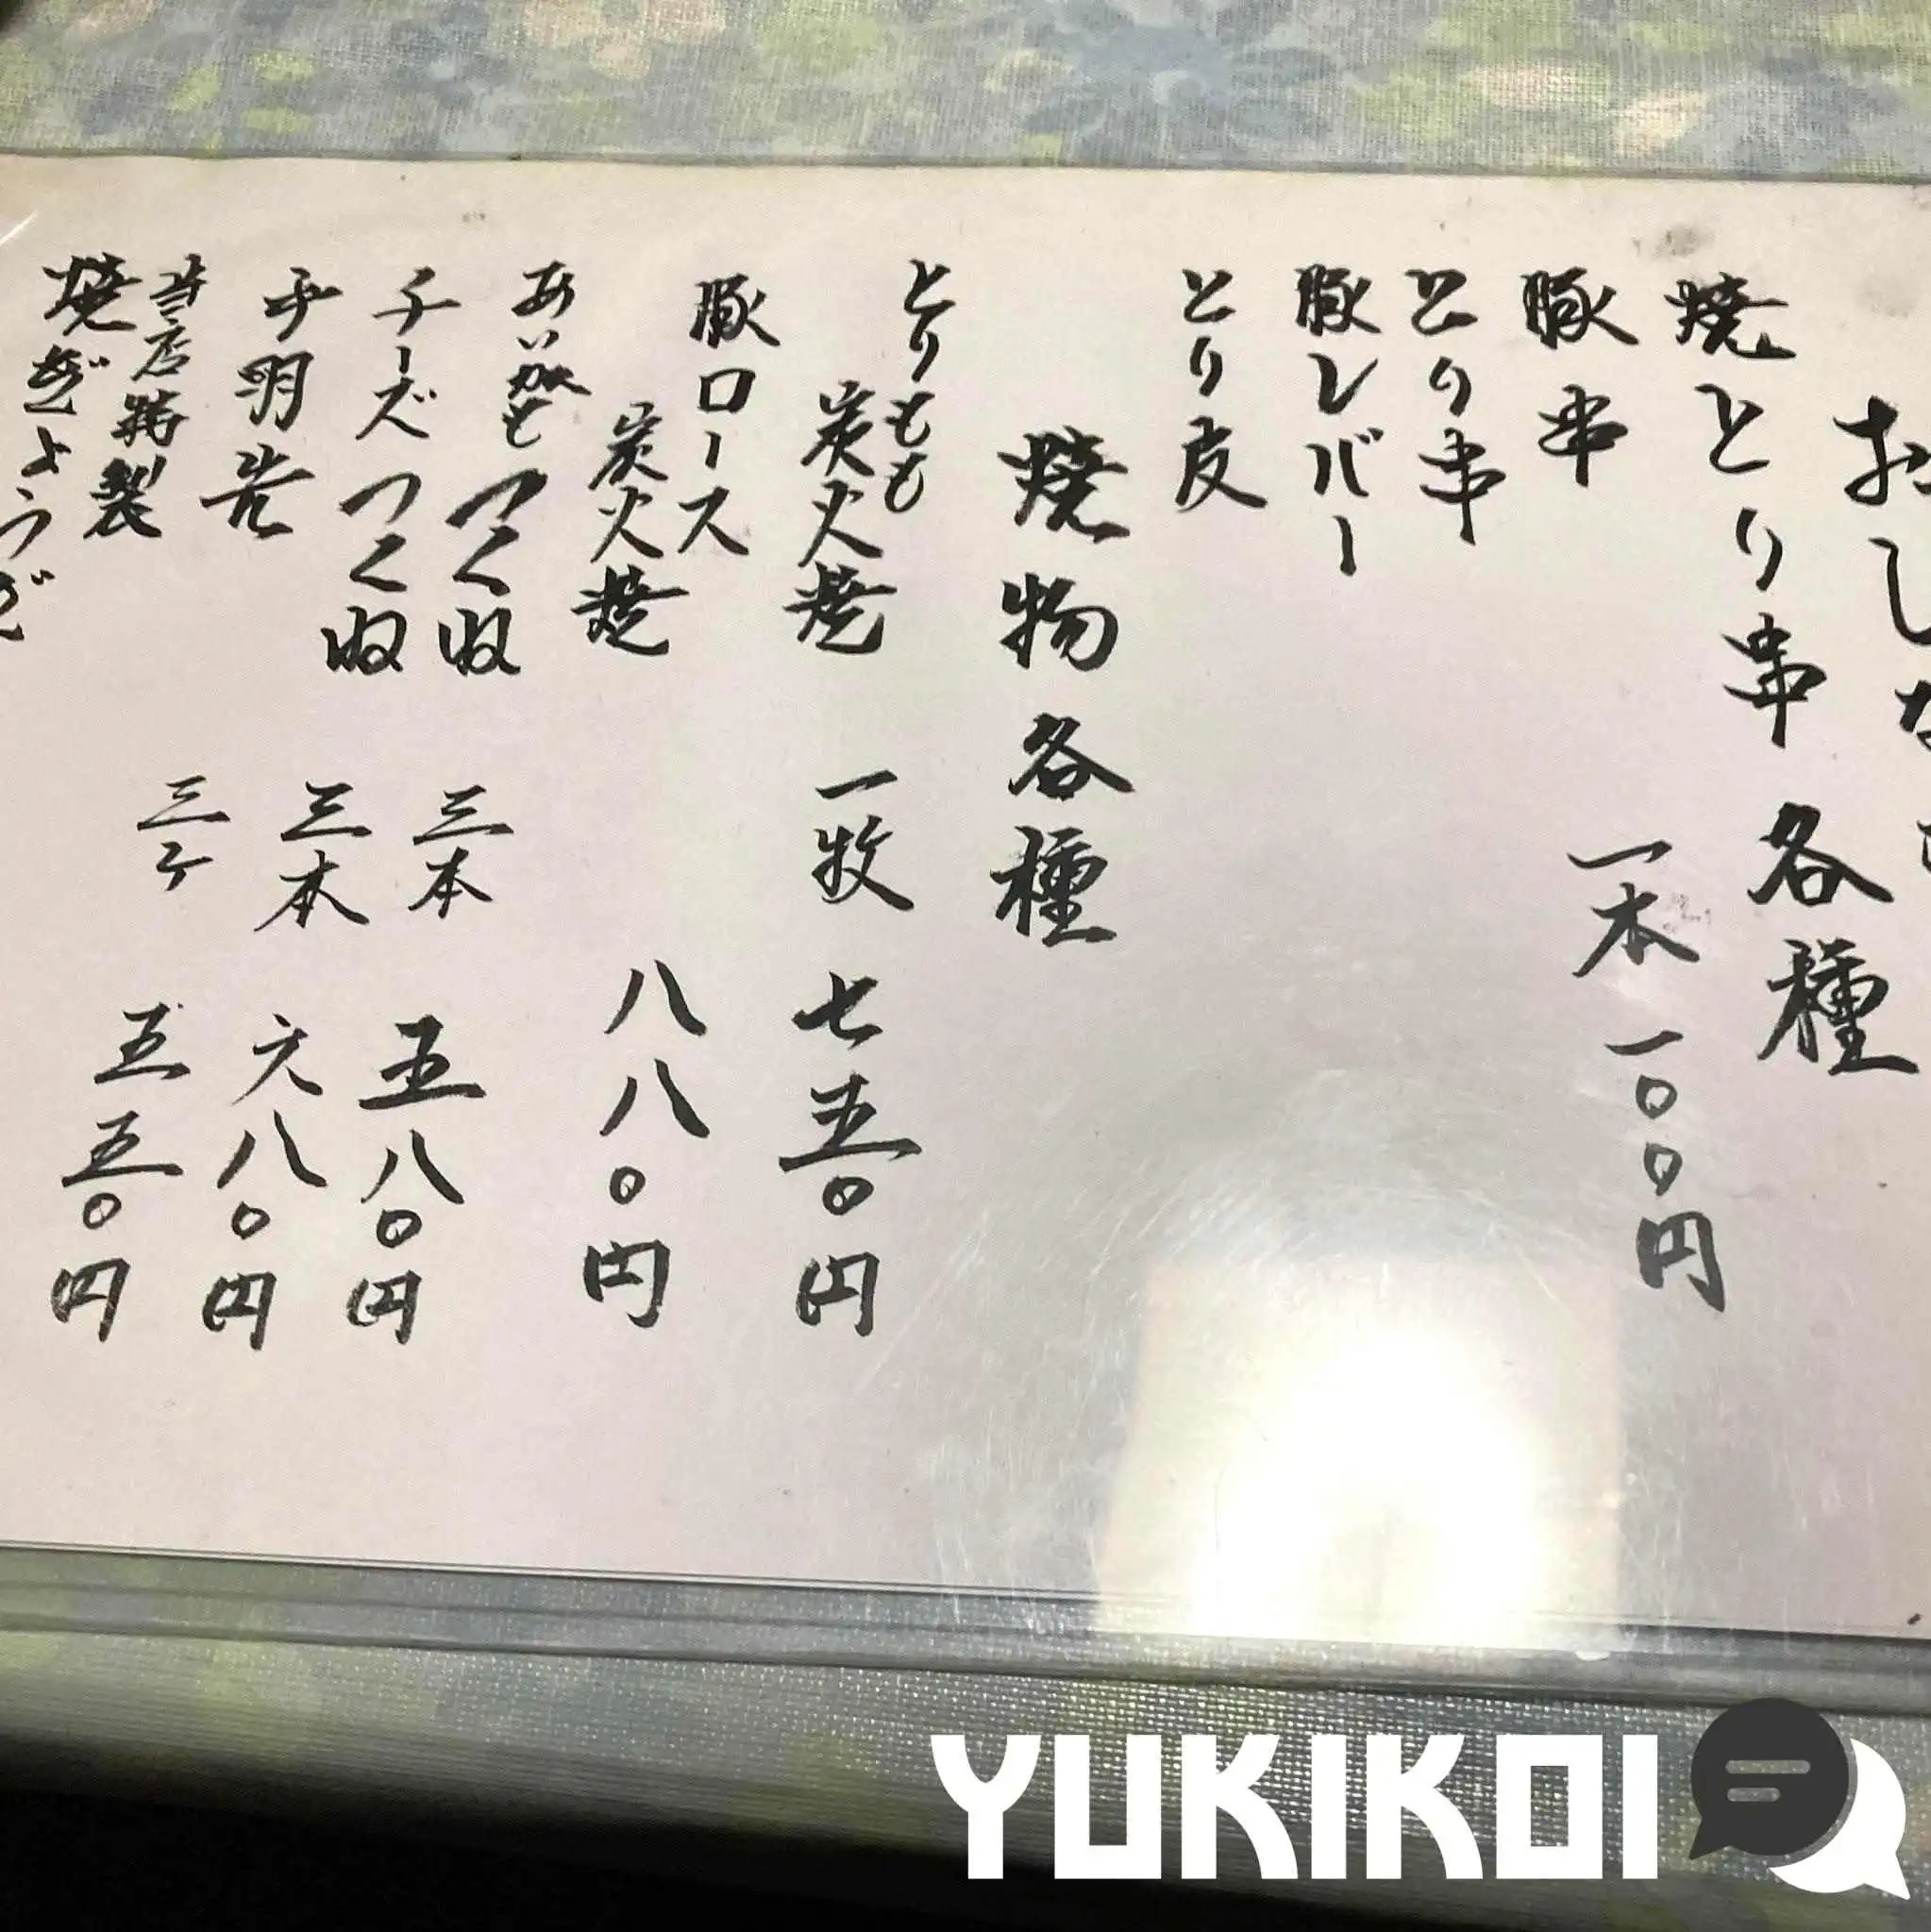 おしな
焼とり串 各種
豚串 一本 一〇〇円
とり串
豚レバー
とり皮
焼物各種
とりもも
炭火焼 一枚 七五〇円
豚ロース
炭火焼 八八〇円
あい鴨つくね 三本 五八〇円
チーズつくね 三本 六八〇円
手羽 三ケ 五五〇円
当店特製
焼ぎょうざ
YUKIKOI